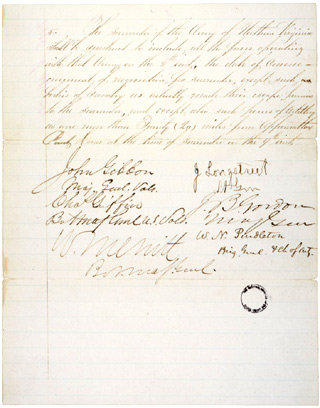 5. The surrender of the Army of Northern Virginia
shall be construed to include all the forces operating
with that Army on the 8th inst, the date of commencement
of negociation for surrender, except such
bodies of Cavalry as actually made their escape previous
to the surrender, and except also such pieces of Artillery
as were more than Twenty (20) miles from Appomattox
Court House at the time of surrender on the 9th inst.
John Gibbon
Maj. Genl. Vols.
Chas Griffin
Bvt Maj Genl U.S. Vols
W. Merritt
Bvt Maj Genl.
J Longstreet
Lt Gen
J B Gordon
Maj Gen
W. N. Pendleton
Brig. Genl & Ch of Art.